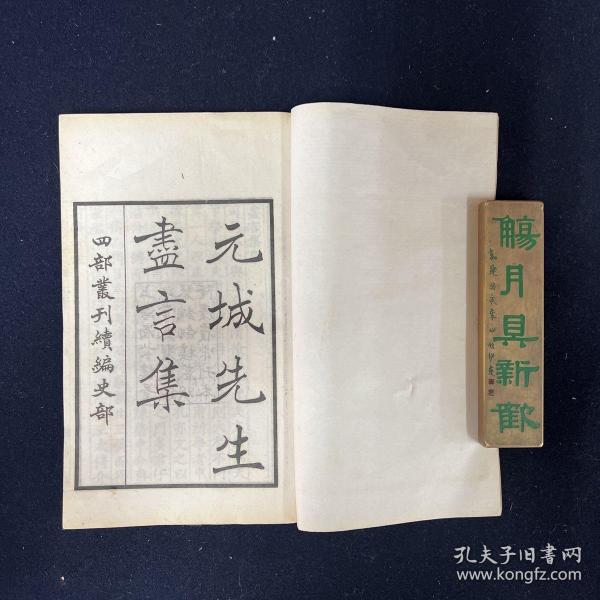 元城先生
盡言集
四部叢刊續編史部
觴月具新歡
孔夫子旧书网
www.kongfz.com